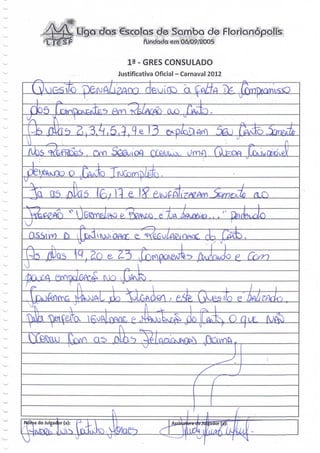 Liga das Escolas de Samba de Florianópolis
LIESF
fundada em 06/09/2005
1ª - GRES CONSULADO
Justificativa Oficial – Carnaval 2012
Quesito penalizado devido a falta de compromisso
dos componentes em relação ao canto.
As alas 2,3,4,5,7,9 e 13 explodiam seu canto somente
nos refrões, em seguida ocorria uma queda considerável
deixando o canto incompleto.
Já as alas 16,17 e 18 enfatizaram somente ao
refrão "Vermelho e Branco e ... " perdendo
assim a continuidade e regularidade do canto.
As alas 19,20 e 23 componentes andando e com
pouca empolgação no canto.
Conforme manual do julgador, este quesito é balizado,
pela perfeita igualdade e manutenção do canto, o que não
ocorreu com as alas relacionadas acima.
Nome do Julgador (a):
Assinatura do Julgador (a):
André Luis